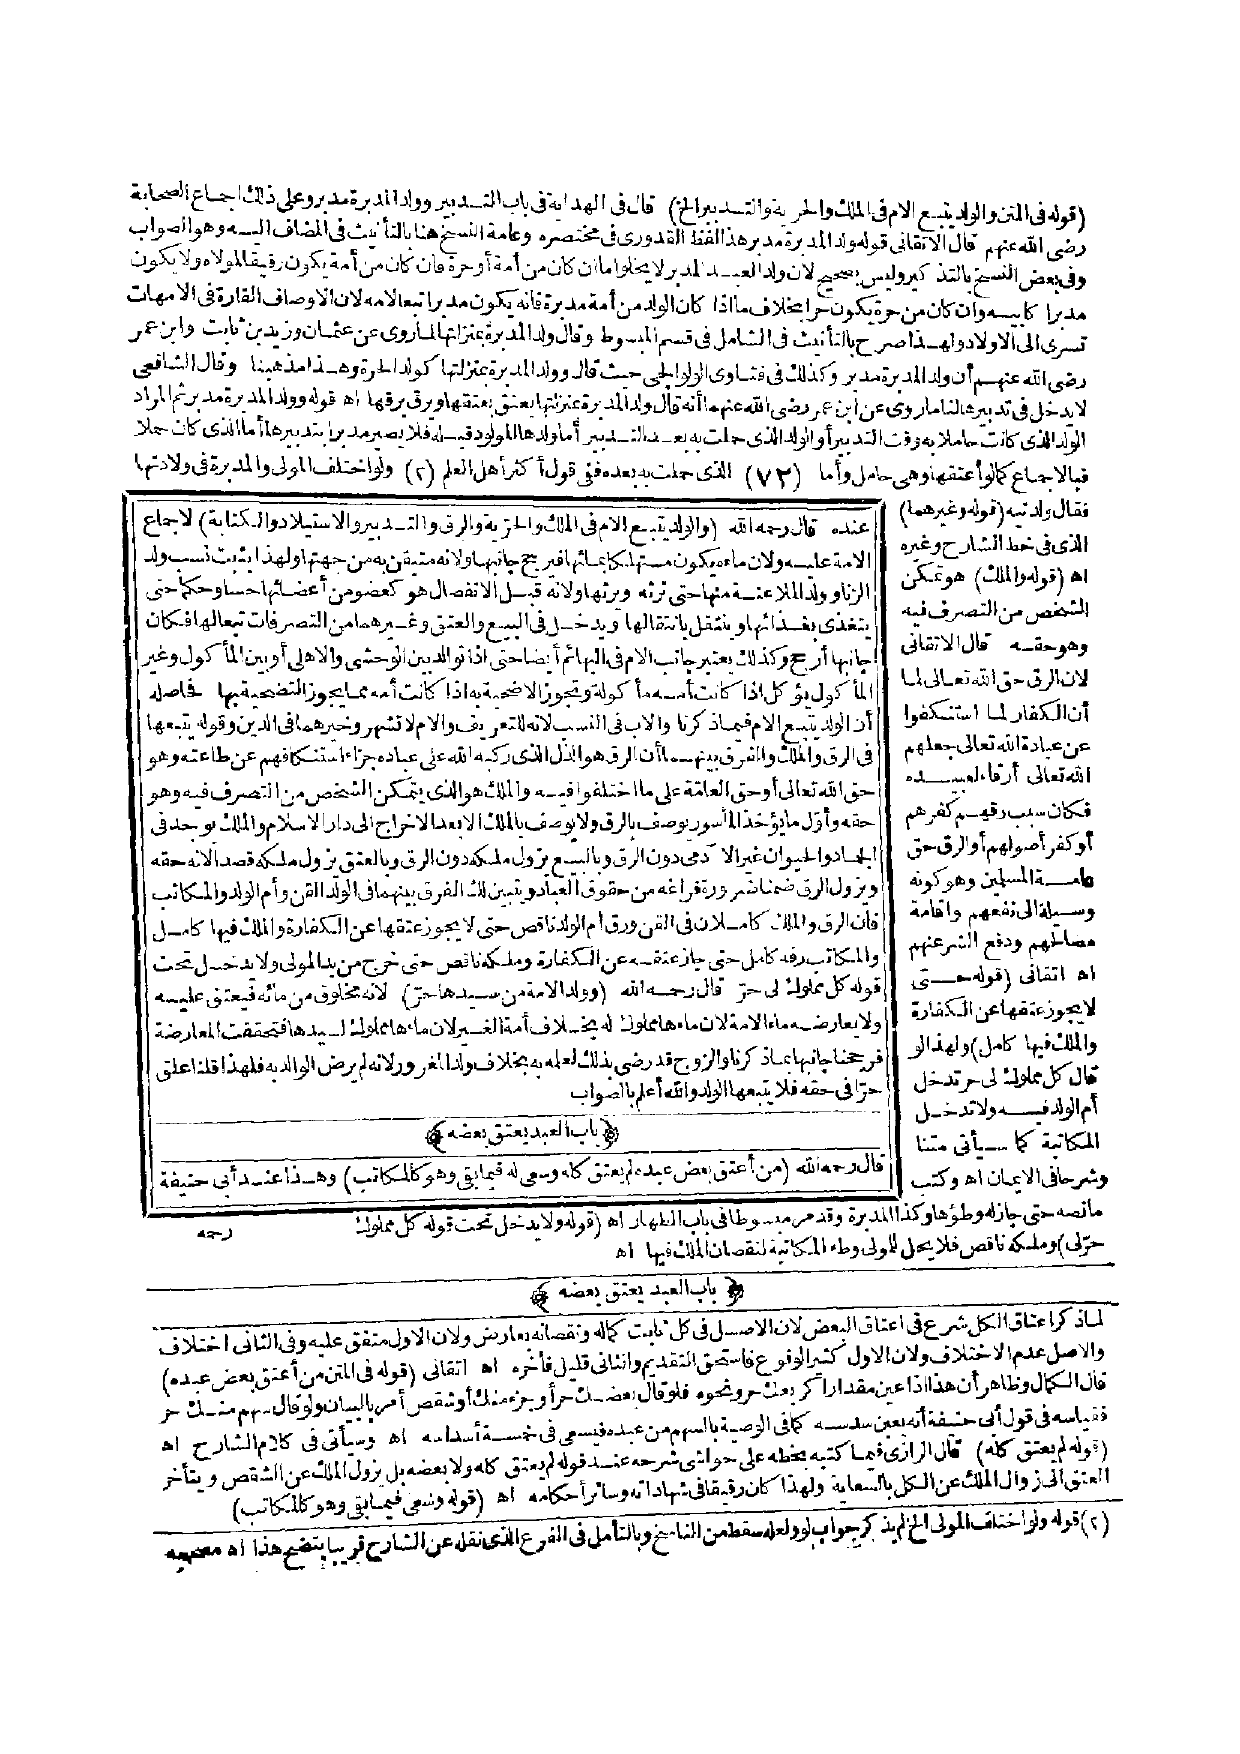 (قوله في المتن والولد يتبع الام في الملك والحرية والتدبير الخ) قال في الهداية في باب التدبير وولد المدبرة مدبر وعلى ذلك اجماع الصحابة
رضى الله عنهم قال الاتقانى قوله ولد المدبرة مدبر هذا لفظ القدورى في مختصره وعامة النسخ هنا بالتأنيث في المضاف اليه وهو الصواب
وفى بعض النسخ بالتذكير وليس بصحيح لان ولد العبد المدبر لا يخلو اما ان كان من أمة أو حرة فان كان من أمة يكون رقيقا لمولاه ولا يكون
مدبرا كابيه وان كان من حرة يكون حرا بخلاف ما اذا كان الولد من أمة مدبرة فانه يكون مدبرا تبعا لامه لان الاوصاف القارة في الامهات
تسرى الى الاولاد ولهذا صرح بالتأنيث في الشامل في قسم المبسوط وقال ولد المدبرة بمنزلتها لما روى عن عثمان وزيد بن ثابت وابن عمر
رضى الله عنهم أن ولد المدبرة مدبر وكذلك في فتاوى الولوالجى حيث قال وولد المدبرة بمنزلتها كولد الحرة وهذا مذهبنا وقال الشافعى
لا يدخل في تدبيرها لنا ما روى عن ابن عمر رضى الله عنهما أنه قال ولد المدبرة بمنزلتها يعتق بعتقها ويرق برقها اه قوله وولد المدبرة مدبر ثم المراد
الولد الذى كانت حاملا به وقت التدبير أو الولد الذى حملت به بعد التدبير أما ولدها المولود قبله فلا يصير مدبرا بتدبيرها أما الذى كان حملا
فبالاجماع كما لو أعتقها وهى حامل وأما (٧٣) الذى حملت به بعده ففى قول أكثر أهل العلم (٢) ولو اختلف المولى والمدبرة في ولادتها
فقال ولدتيه (قوله وغيرهما)
الذى في خط الشارح وغيره
اه (قوله والملك) هو تمكن
الشخص من التصرف فيه
وهو حقه قال الاتقانى
لان الرق حق الله تعالى لما
أن الكفار لما استنكفوا
عن عبادة الله تعالى جعلهم
الله تعالى أرقاء لعبيده
فكان سبب رقهم كفرهم
أو كفر أصولهم أو الرق حق
عامة المسلمين وهو كونه
وسيلة الى نفعهم واقامة
مصالحهم ودفع الشر عنهم
اه اتقانى (قوله حتى
لا يجوز عتقها عن الكفارة
والملك فيها كامل) ولهذا لو
قال كل مملوك لى حر تدخل
أم الولد فيه ولا تدخل
المكاتبة كما سيأتى متنا
وشرحا في الايمان اه وكتب
عنده قال رحمه الله (والولد يتبع الام في الملك والحرية والرق والتدبير والاستيلاد والكتابة) لاجماع
الامة عليه ولان ماءه يكون مستهلكا بمائها فيرجح جانبها ولانه متيقن به من جهتها ولهذا يثبت نسب ولد
الزنا وولد الملاعنة منها حتى ترثه ويرثها ولانه قبل الانفصال هو كعضو من أعضائها حسا وحكما حتى
يتغذى بغذائها وينتقل بانتقالها ويدخل في البيع والعتق وغيرهما من التصرفات تبعا لها فكان
جانبها أرجح وكذلك يعتبر جانب الام في البهائم أيضا حتى اذا توالد بين الوحشى والاهلى أو بين المأكول وغير
المأكول يؤكل اذا كانت أمه مأكولة وتجوز الاضحية به اذا كانت أمه مما يجوز التضحية بها فحاصله
أن الولد يتبع الام فيما ذكرنا والاب في النسب لانه للتعريف والام لا تشهر وخيرهما في الدين وقوله يتبعها
في الرق والملك والفرق بينهما أن الرق هو الذل الذى ركبه الله على عباده جزاء استنكافهم عن طاعته وهو
حق الله تعالى أو حق العامة على ما اختلفوا فيه والملك هو الذى يتمكن الشخص من التصرف فيه وهو
حقه وأول ما يؤخذ المأسور يوصف بالرق ولا يوصف بالملك الا بعد الاخراج الى دار الاسلام والملك يوجد في
الجماد والحيوان غير الآدمى دون الرق وبالبيع يزول ملكه دون الرق وبالعتق يزول ملكه قصدا لانه حقه
ويزول الرق ضمنا ضرورة فراغه من حقوق العباد ويتبين لك الفرق بينهما في الولد القن وأم الولد والمكاتب
فان الرق والملك كاملان في القن ورق أم الولد ناقص حتى لا يجوز عتقها عن الكفارة والملك فيها كامل
والمكاتب رقه كامل حتى جاز عتقه عن الكفارة وملكه ناقص حتى خرج من يد المولى ولا يدخل تحت
قوله كل مملوك لى حر قال رحمه الله (وولد الامة من سيدها حر) لانه مخلوق من مائه فيعتق عليه
ولا يعارضه ماء الامة لان ماءها مملوك له بخلاف أمة الغير لان ماءها مملوك لسيدها فتحققت المعارضة
فرجحنا جانبها بما ذكرنا والزوج قد رضى بذلك لعلمه به بخلاف ولد المغرور لانه لم يرض الوالد به فلهذا قلنا علق
حرا في حقه فلا يتبعها الولد والله أعلم بالصواب
﴿باب العبد يعتق بعضه﴾
قال رحمه الله (من أعتق بعض عبده لم يعتق كله وسعى له فيما بقى وهو كالمكاتب) وهذا عند أبى حنيفة
رحمه
ما نصه حتى جاز له وطؤها وكذا المدبرة وقد مر مبسوطا في باب الظهار اه (قوله ولا يدخل تحت قوله كل مملوك
حر لى) وملكه ناقص فلا يحل للمولى وطء المكاتبة لنقصان الملك فيها اه
﴿باب العبد يعتق بعضه﴾
لما ذكر اعتاق الكل شرع في اعتاق البعض لان الاصل في كل ثابت كماله ونقصانه بعارض ولان الاول متفق عليه وفى الثانى اختلاف
والاصل عدم الاختلاف ولان الاول كثير الوقوع فاستحق التقديم والثانى قليل فأخره اه اتقانى (قوله في المتن من أعتق بعض عبده)
قال الكمال وظاهر أن هذا اذا عين مقدارا كربعك حر ونحوه فلو قال بعضك حر أو جزء منك أو شقص أمر بالبيان ولو قال سهم منك حر
فقياسه في قول أبى حنيفة أنه يعين سدسه كما في الوصية بالسهم من عبده فيسعى في خمسة أسداسه اه وسيأتى في كلام الشارح اه
(قوله لم يعتق كله) قال الرازى فيما كتبه بخطه على حواشى شرحه عند قوله لم يعتق كله ولا بعضه بل يزول الملك عن الشقص ويتأخر
العتق الى زوال الملك عن الكل بالسعاية ولهذا كان رقيقا في شهاداته وسائر أحكامه اه (قوله وسعى فيما بقى وهو كالمكاتب)
(٢) قوله ولو اختلف المولى الخ لم يذكر جواب لو ولعله سقط من الناسخ وبالتأمل في الفرع الذى نقله عن الشارح قريبا يتضح هذا اه مصححه